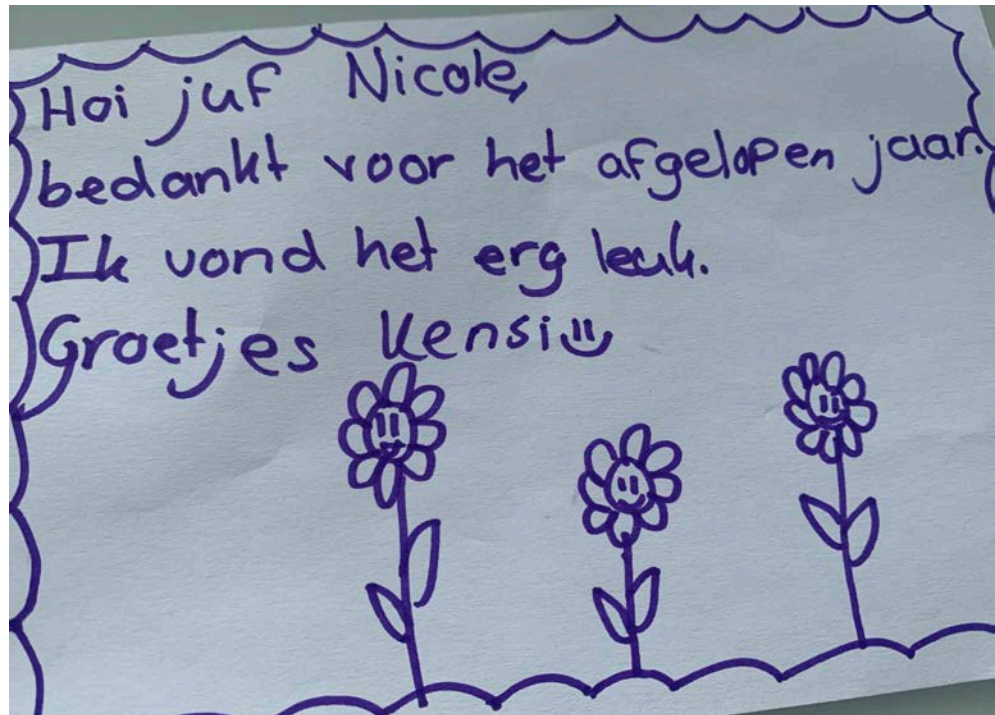 Hoi juf Nicole,
bedankt voor het afgelopen jaar.
Ik vond het erg leuk.
Groetjes Kensi